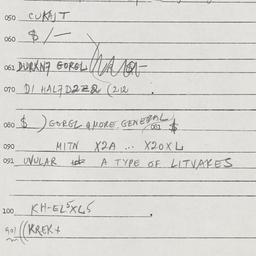 050 CUKAJT
060 $ /—
061 DURKN7 GOREL
070 D1 HAL7DZZR (212 .
080 $ ) GOREL & MORE GENERAL/ 061 $
090 MITN X2A ... X20XL
091 UVULAR A TYPE OF LITVAKES
100 KH-EL5XL5 .
901 ((KREK+